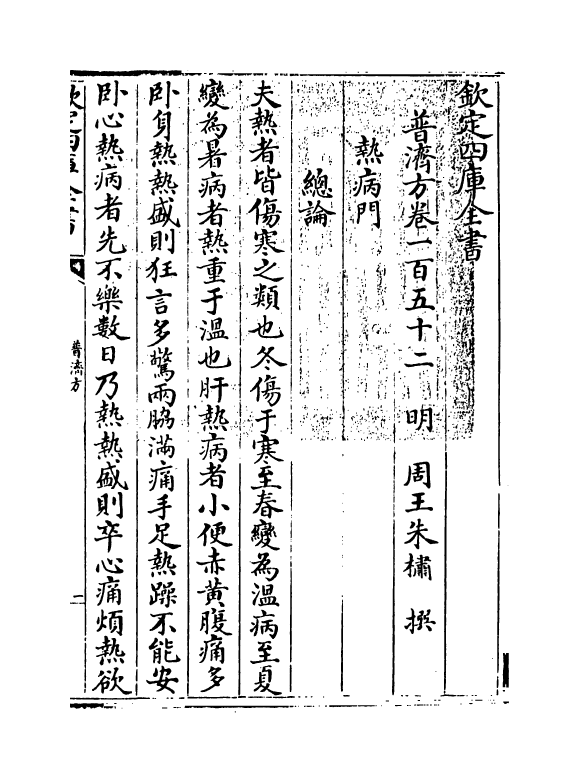 欽定四庫全書
普濟方卷一百五十二 明 周王朱橚 撰
熱病門
總論
夫熱者皆傷寒之類也冬傷于寒至春變為温病至夏
變為暑病者熱重于温也肝熱病者小便赤黄腹痛多
卧身熱熱盛則狂言多驚兩脇滿痛手足熱躁不能安
卧心熱病者先不樂數日乃熱熱盛則卒心痛煩熱欲
欽定四庫全書
普濟方